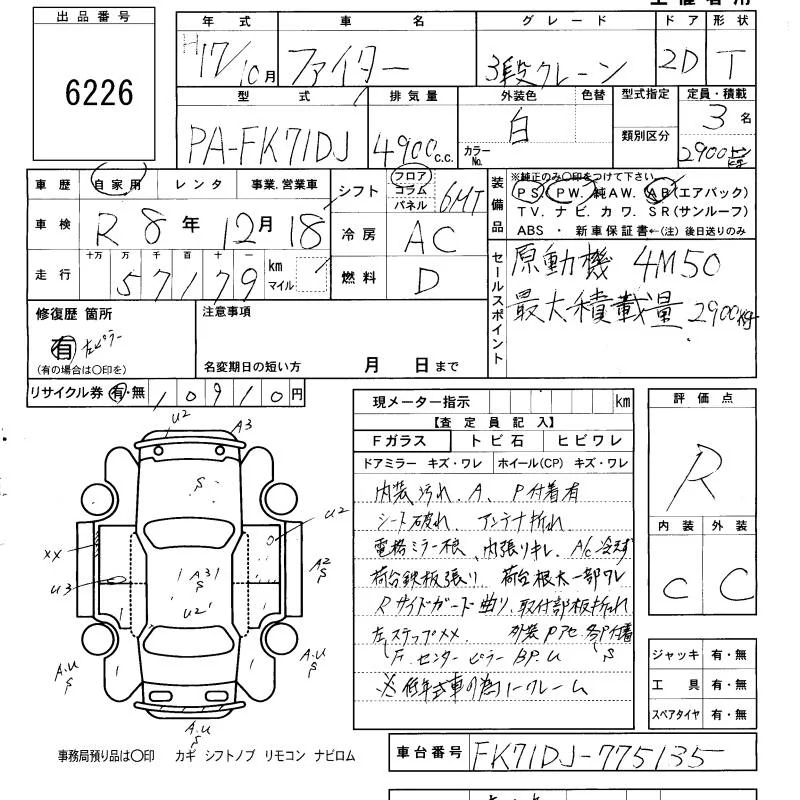 出品番号
6226
年式 車名 グレード ドア 形状
H17/10月 ファイター 3段クレーン 2D T
型式 排気量 外装色 色替 型式指定 定員・積載
PA-FK71DJ 4900c.c. 白 3名
カラーNo. 類別区分 2900kg
車歴 自家用 レンタ 事業、営業車
シフト フロア コラム パネル 6MT
装備品
※純正のみ〇印をつけて下さい
PS. PW. 純AW. AB(エアバック)
TV. ナビ. カワ. SR(サンルーフ)
ABS ・ 新車保証書←(注) 後日送りのみ
車検 R8年12月18
冷房 AC
走行 十万 万 千 百 十 一
57179 km マイル
燃料 D
セールスポイント
原動機 4M50
最大積載量 2900kg
修復歴 箇所
有 左ピラー
(有の場合は〇印を)
注意事項
名変期日の短い方 月 日まで
リサイクル券 有・無 10910円
現メーター指示 km
【査定員記入】
Fガラス トビ石 ヒビワレ
ドアミラー キズ・ワレ ホイール(CP) キズ・ワレ
内装 汚れ. A. P付着有
シート破れ アンテナ折れ
電格ミラー根. 内張りキレ. A/C冷えず
荷台鉄板張り 荷台根太一部ワレ
Rサイドガード曲り. 取付部板折れ
左ステップXX 外装Pアセ 各所付着
F. センターピラーBP.U S
※低年式車の為ノークレーム
評価点
R
内装 外装
C C
U2 A3
S
U2
XX
U3
A31
S
A2
S
U2
A.U
S
A.U
S
A.U
S
ジャッキ 有・無
工具 有・無
スペアタイヤ 有・無
事務局預り品は〇印 カギ シフトノブ リモコン ナビロム
車台番号 FK71DJ-775135